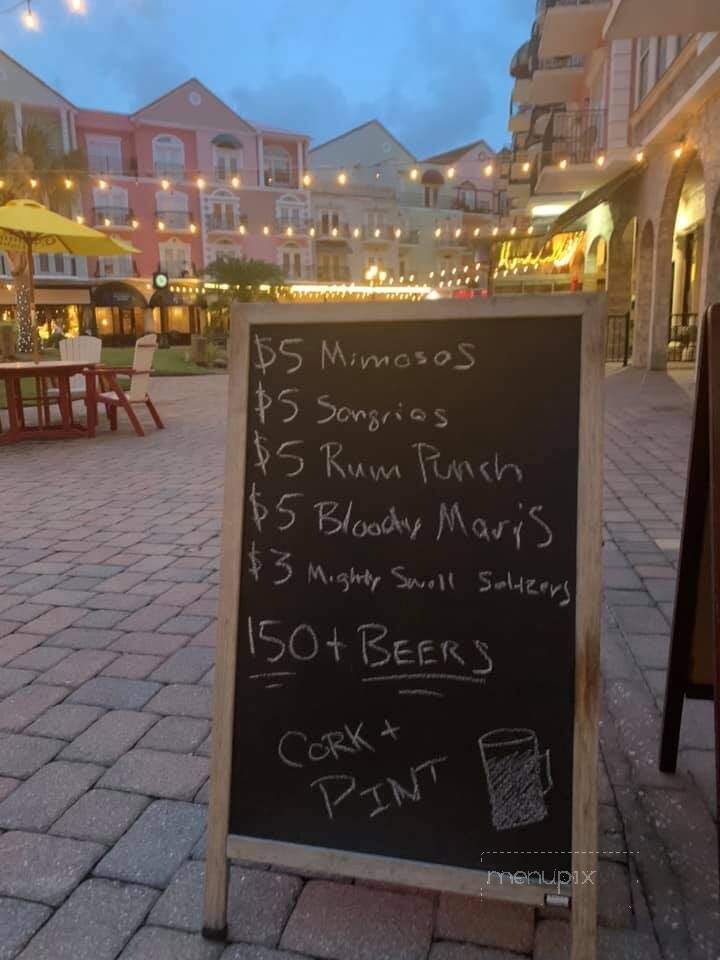 $5 Mimosas
$5 Sangrias
$5 Rum Punch
$5 Bloody Mary's
$3 Mighty Swell Seltzers
150+ BEERS
CORK +
PINT
menupix